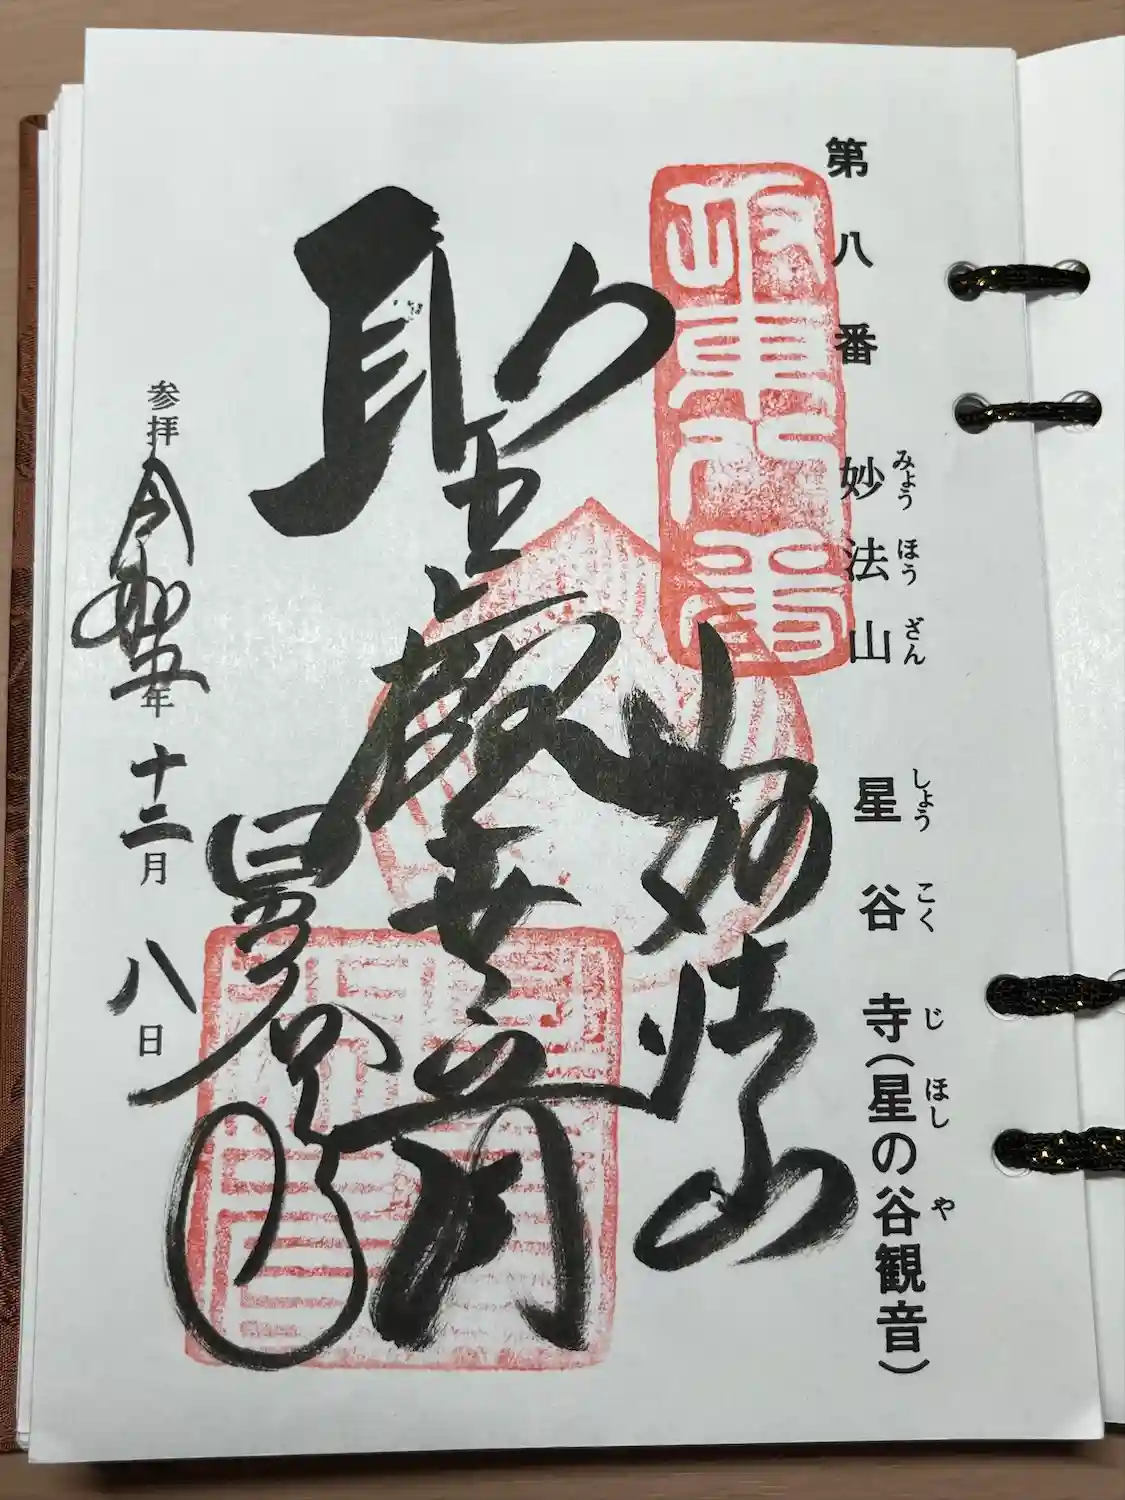 第八番 妙法山 星谷寺(星の谷観音)
みょう ほう ざん しょう こく じ ほし や
坂東八番
妙法山
星谷寺
参拝 令和五年 十二月 八日